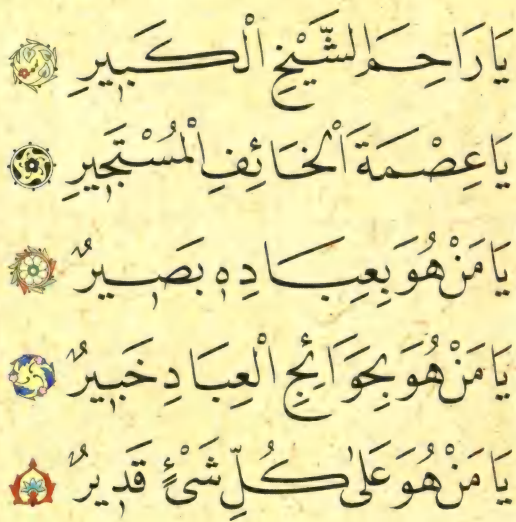 يَا رَاحِمَ الشَّيْخِ الْكَبِيرِ
يَا عِصْمَةَ الْخَائِفِ الْمُسْتَجِيرِ
يَا مَنْ هُوَ بِعِبَادِهِ بَصِيرٌ
يَا مَنْ هُوَ بِحَوَائِجِ الْعِبَادِ خَبِيرٌ
يَا مَنْ هُوَ عَلٰى كُلِّ شَىْءٍ قَدِيرٌ